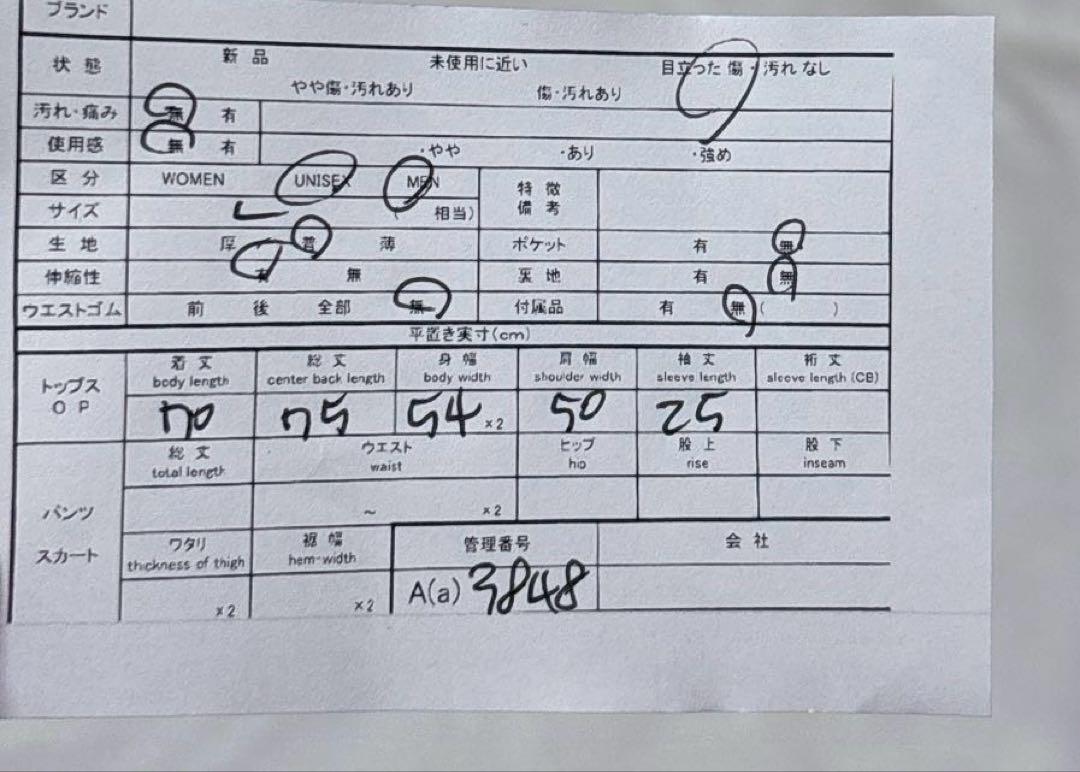 ブランド
状態 新品 未使用に近い 目立った傷・汚れなし
やや傷・汚れあり 傷・汚れあり
汚れ・痛み 無 有
使用感 無 有 ・やや ・あり ・強め
区分 WOMEN UNISEX MEN 特徴
備考
サイズ L ( 相当)
生地 厚 普 薄 ポケット 有 無
伸縮性 有 無 裏地 有 無
ウエストゴム 前 後 全部 無 付属品 有 無 ( )
平置き実寸(cm)
トップス
OP
着丈 総丈 身幅 肩幅 袖丈 裄丈
body length center back length body width shoulder width sleeve length sleeve length (CB)
70 75 54 ×2 50 25
パンツ
スカート
総丈 ウエスト ヒップ 股上 股下
total length waist hip rise inseam
~ ×2
ワタリ 裾幅 管理番号 会社
thickness of thigh hem-width
×2 ×2 A(a) 3848